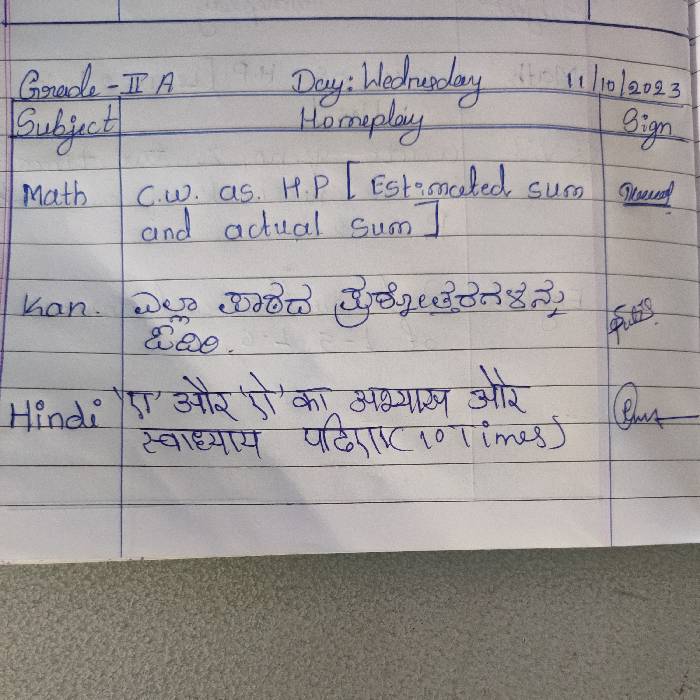 Grade - II A Day: Wednesday 11/10/2023
Subject Homeplay Sign
Math C.W. as. H.P [Estimated sum
and actual sum]
Kan. ಎಲ್ಲಾ ಪಾಠದ ಪ್ರಶ್ನೋತ್ತರಗಳನ್ನು
ಓದಿರಿ.
Hindi 'ए' और 'ऐ' का अभ्यास और
स्वाध्याय पढिए (10 Times)